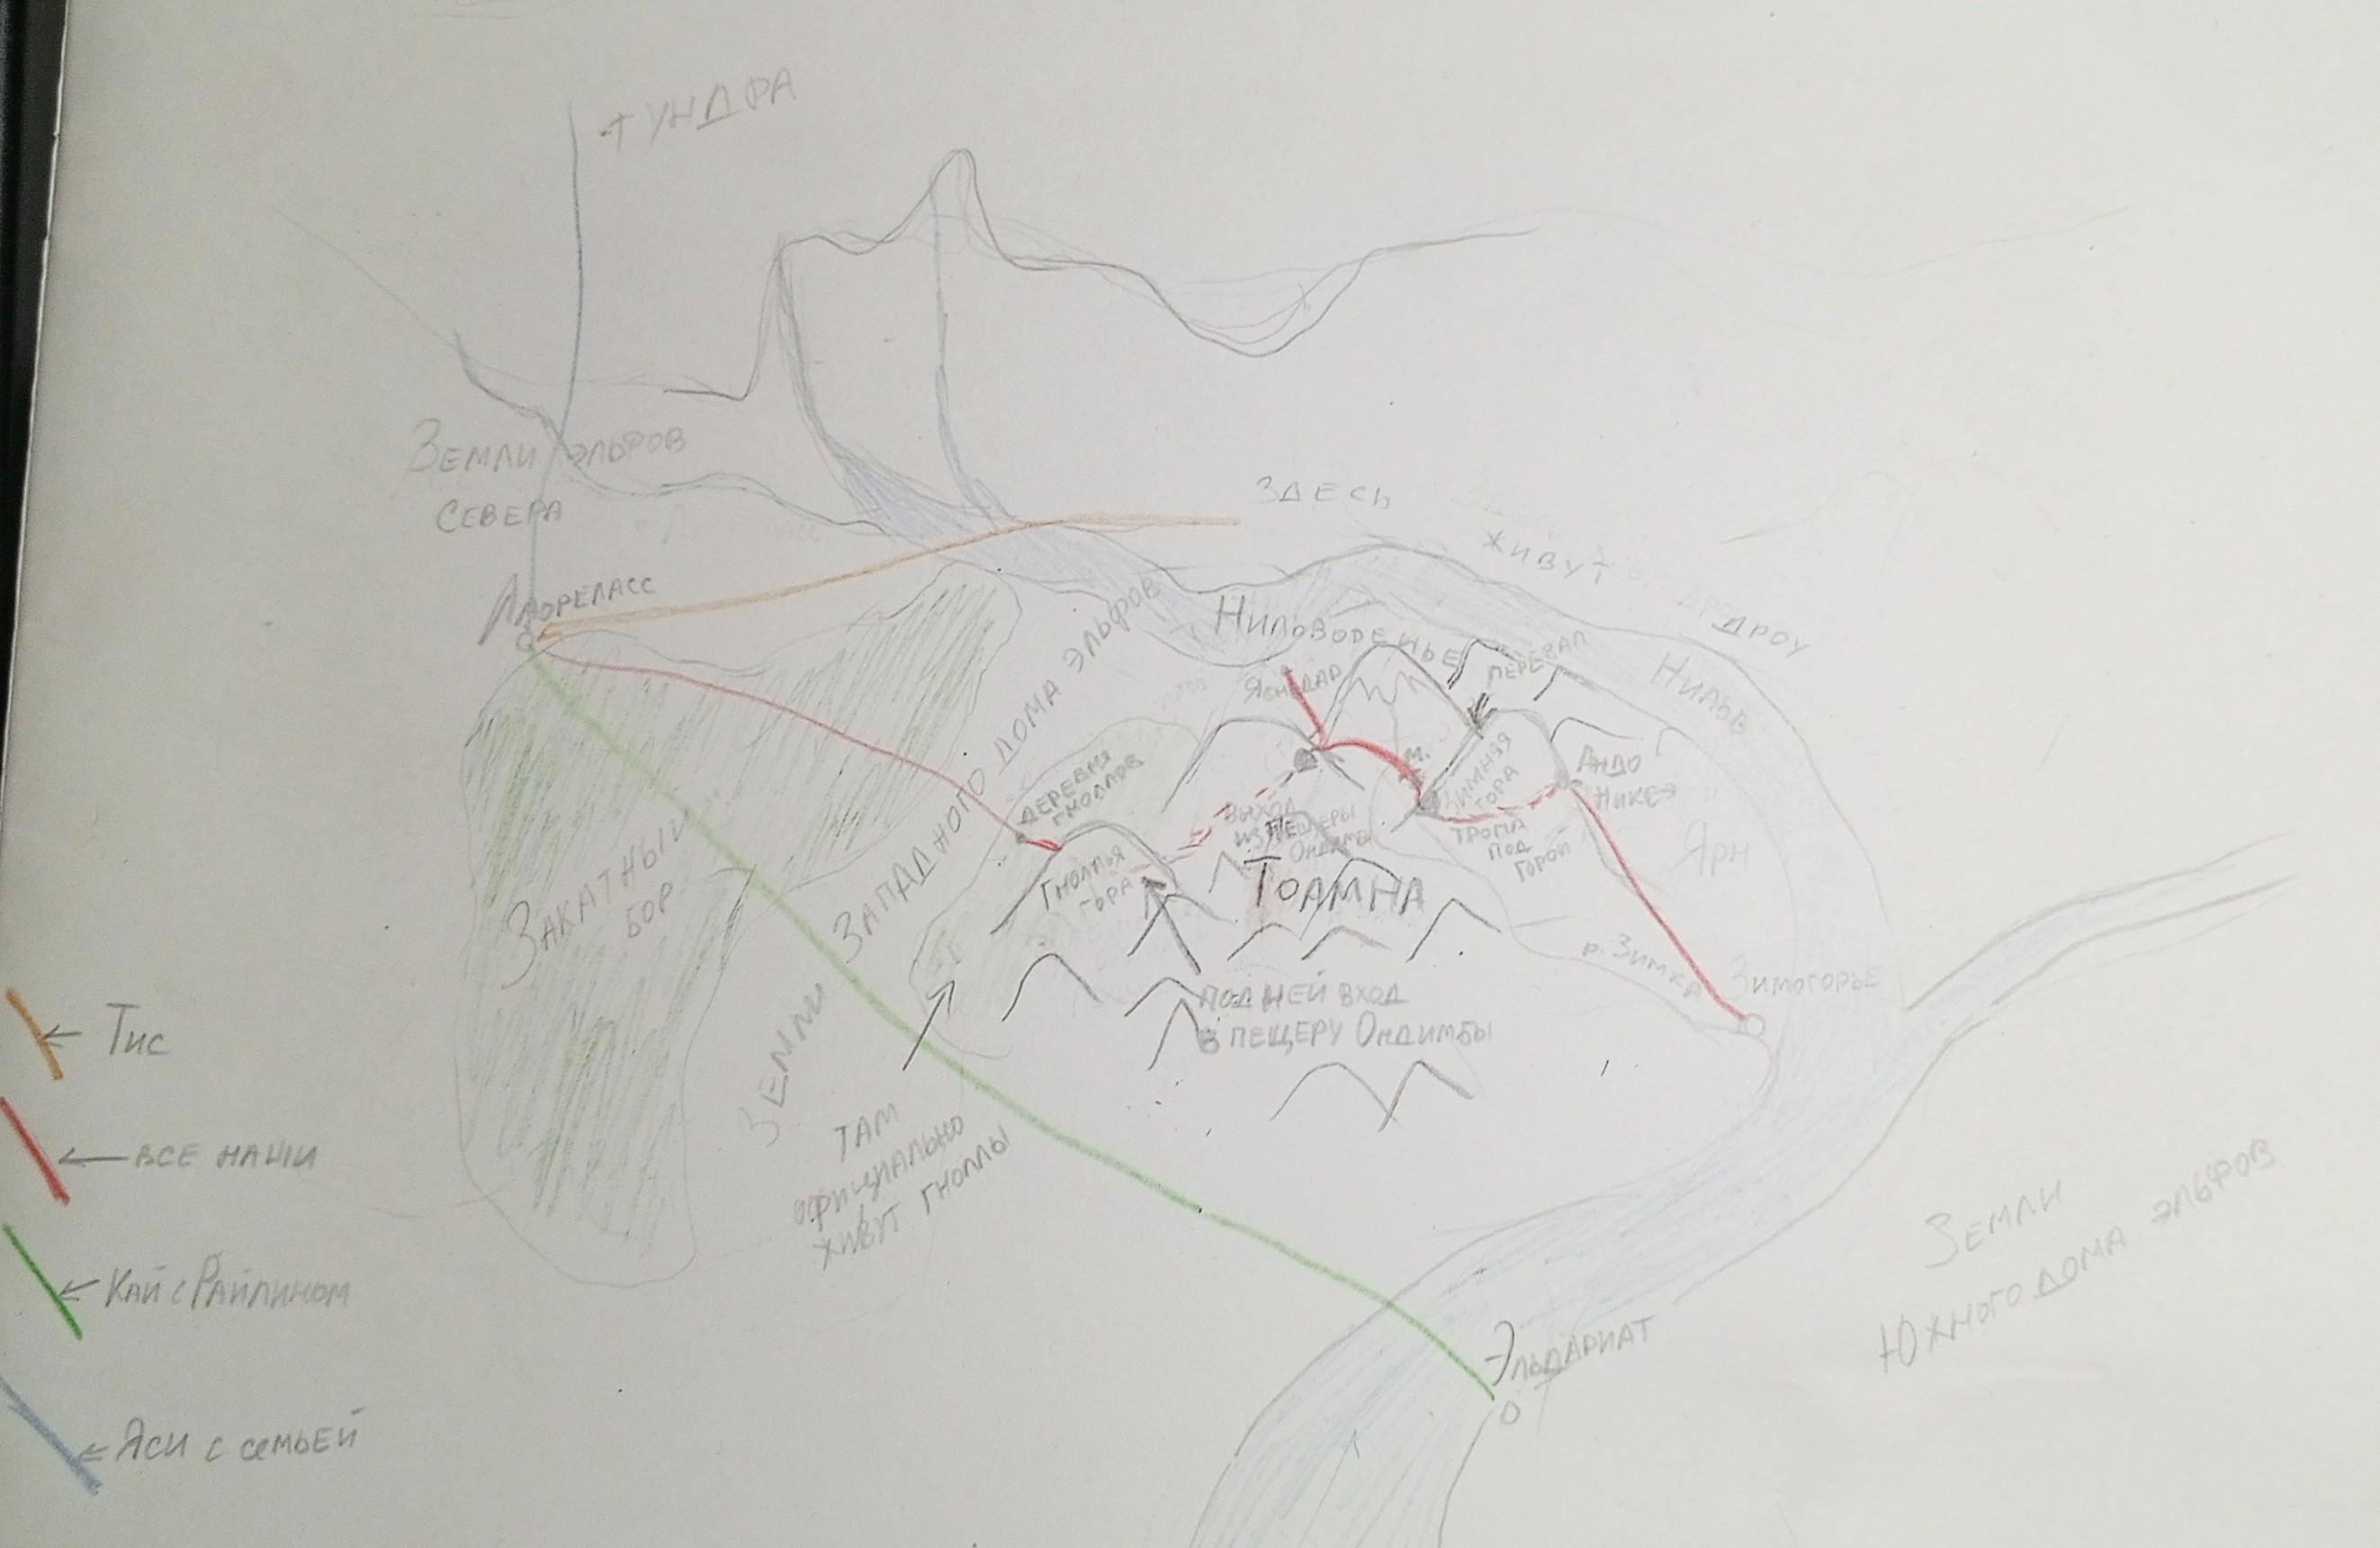 ТУНДРА
ЗЕМЛИ ЭЛЬФОВ
СЕВЕРА
ЛАОРЕЛАСС
ЗДЕСЬ
ЖИВУТ
ДРОУ
НИЛЬВОРЕНЬЕ
ПЕРЕВАЛ
НИЛЬВ
ЯСНЕДАР
ЗИМНЯЯ
ГОРА
АНДО
НИКЕЯ
ТРОПА
ПОД
ГОРОЙ
ЯРН
ДЕРЕВНЯ
ГНОЛЛОВ
ГНОЛЛЬЯ
ГОРА
ВЫХОД
ИЗ ПЕЩЕРЫ
ОНДИМБЫ
ТОАМНА
ЗАКАТНЫЙ
БОР
ЗЕМЛИ ЗАПАДНОГО ДОМА ЭЛЬФОВ
ПОД НЕЙ ВХОД
В ПЕЩЕРУ ОНДИМБЫ
р. ЗИМКА
ЗИМОГОРЬЕ
ТАМ
ОФИЦИАЛЬНО
ЖИВУТ ГНОЛЛЫ
ЭЛЬДАРИАТ
ЗЕМЛИ
ЮЖНОГО ДОМА ЭЛЬФОВ
ТИС
ВСЕ НАШИ
КАЙ С РАЙЛИНОМ
ЯСИ С СЕМЬЕЙ